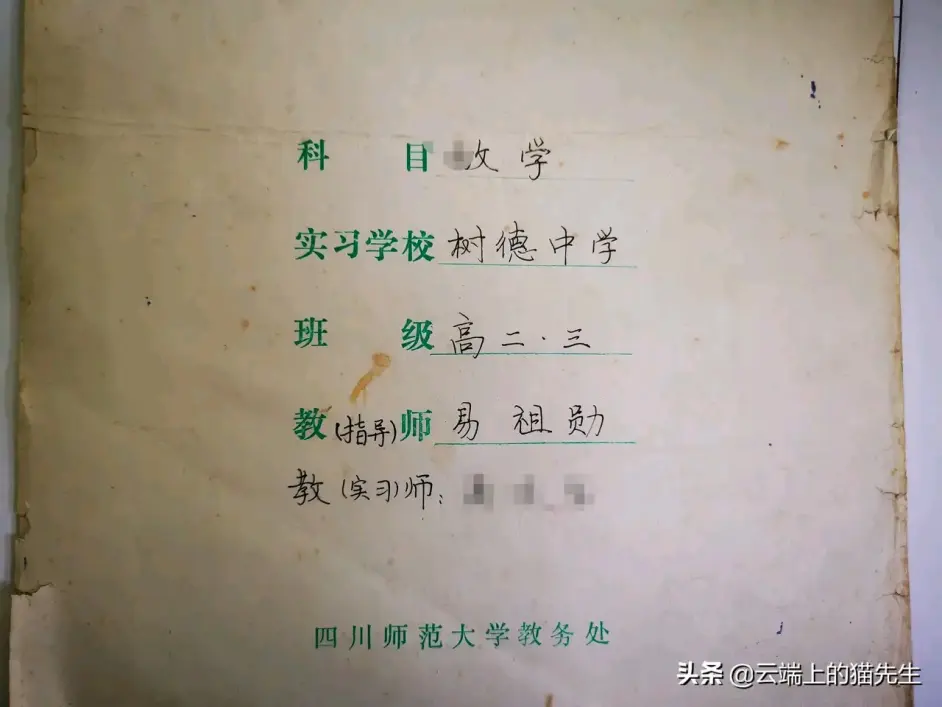 科目 学
实习学校 树德中学
班级 高二·三
教(指导)师 易祖勋
教(实习)师:
四川师范大学教务处
头条 @云端上的猫先生